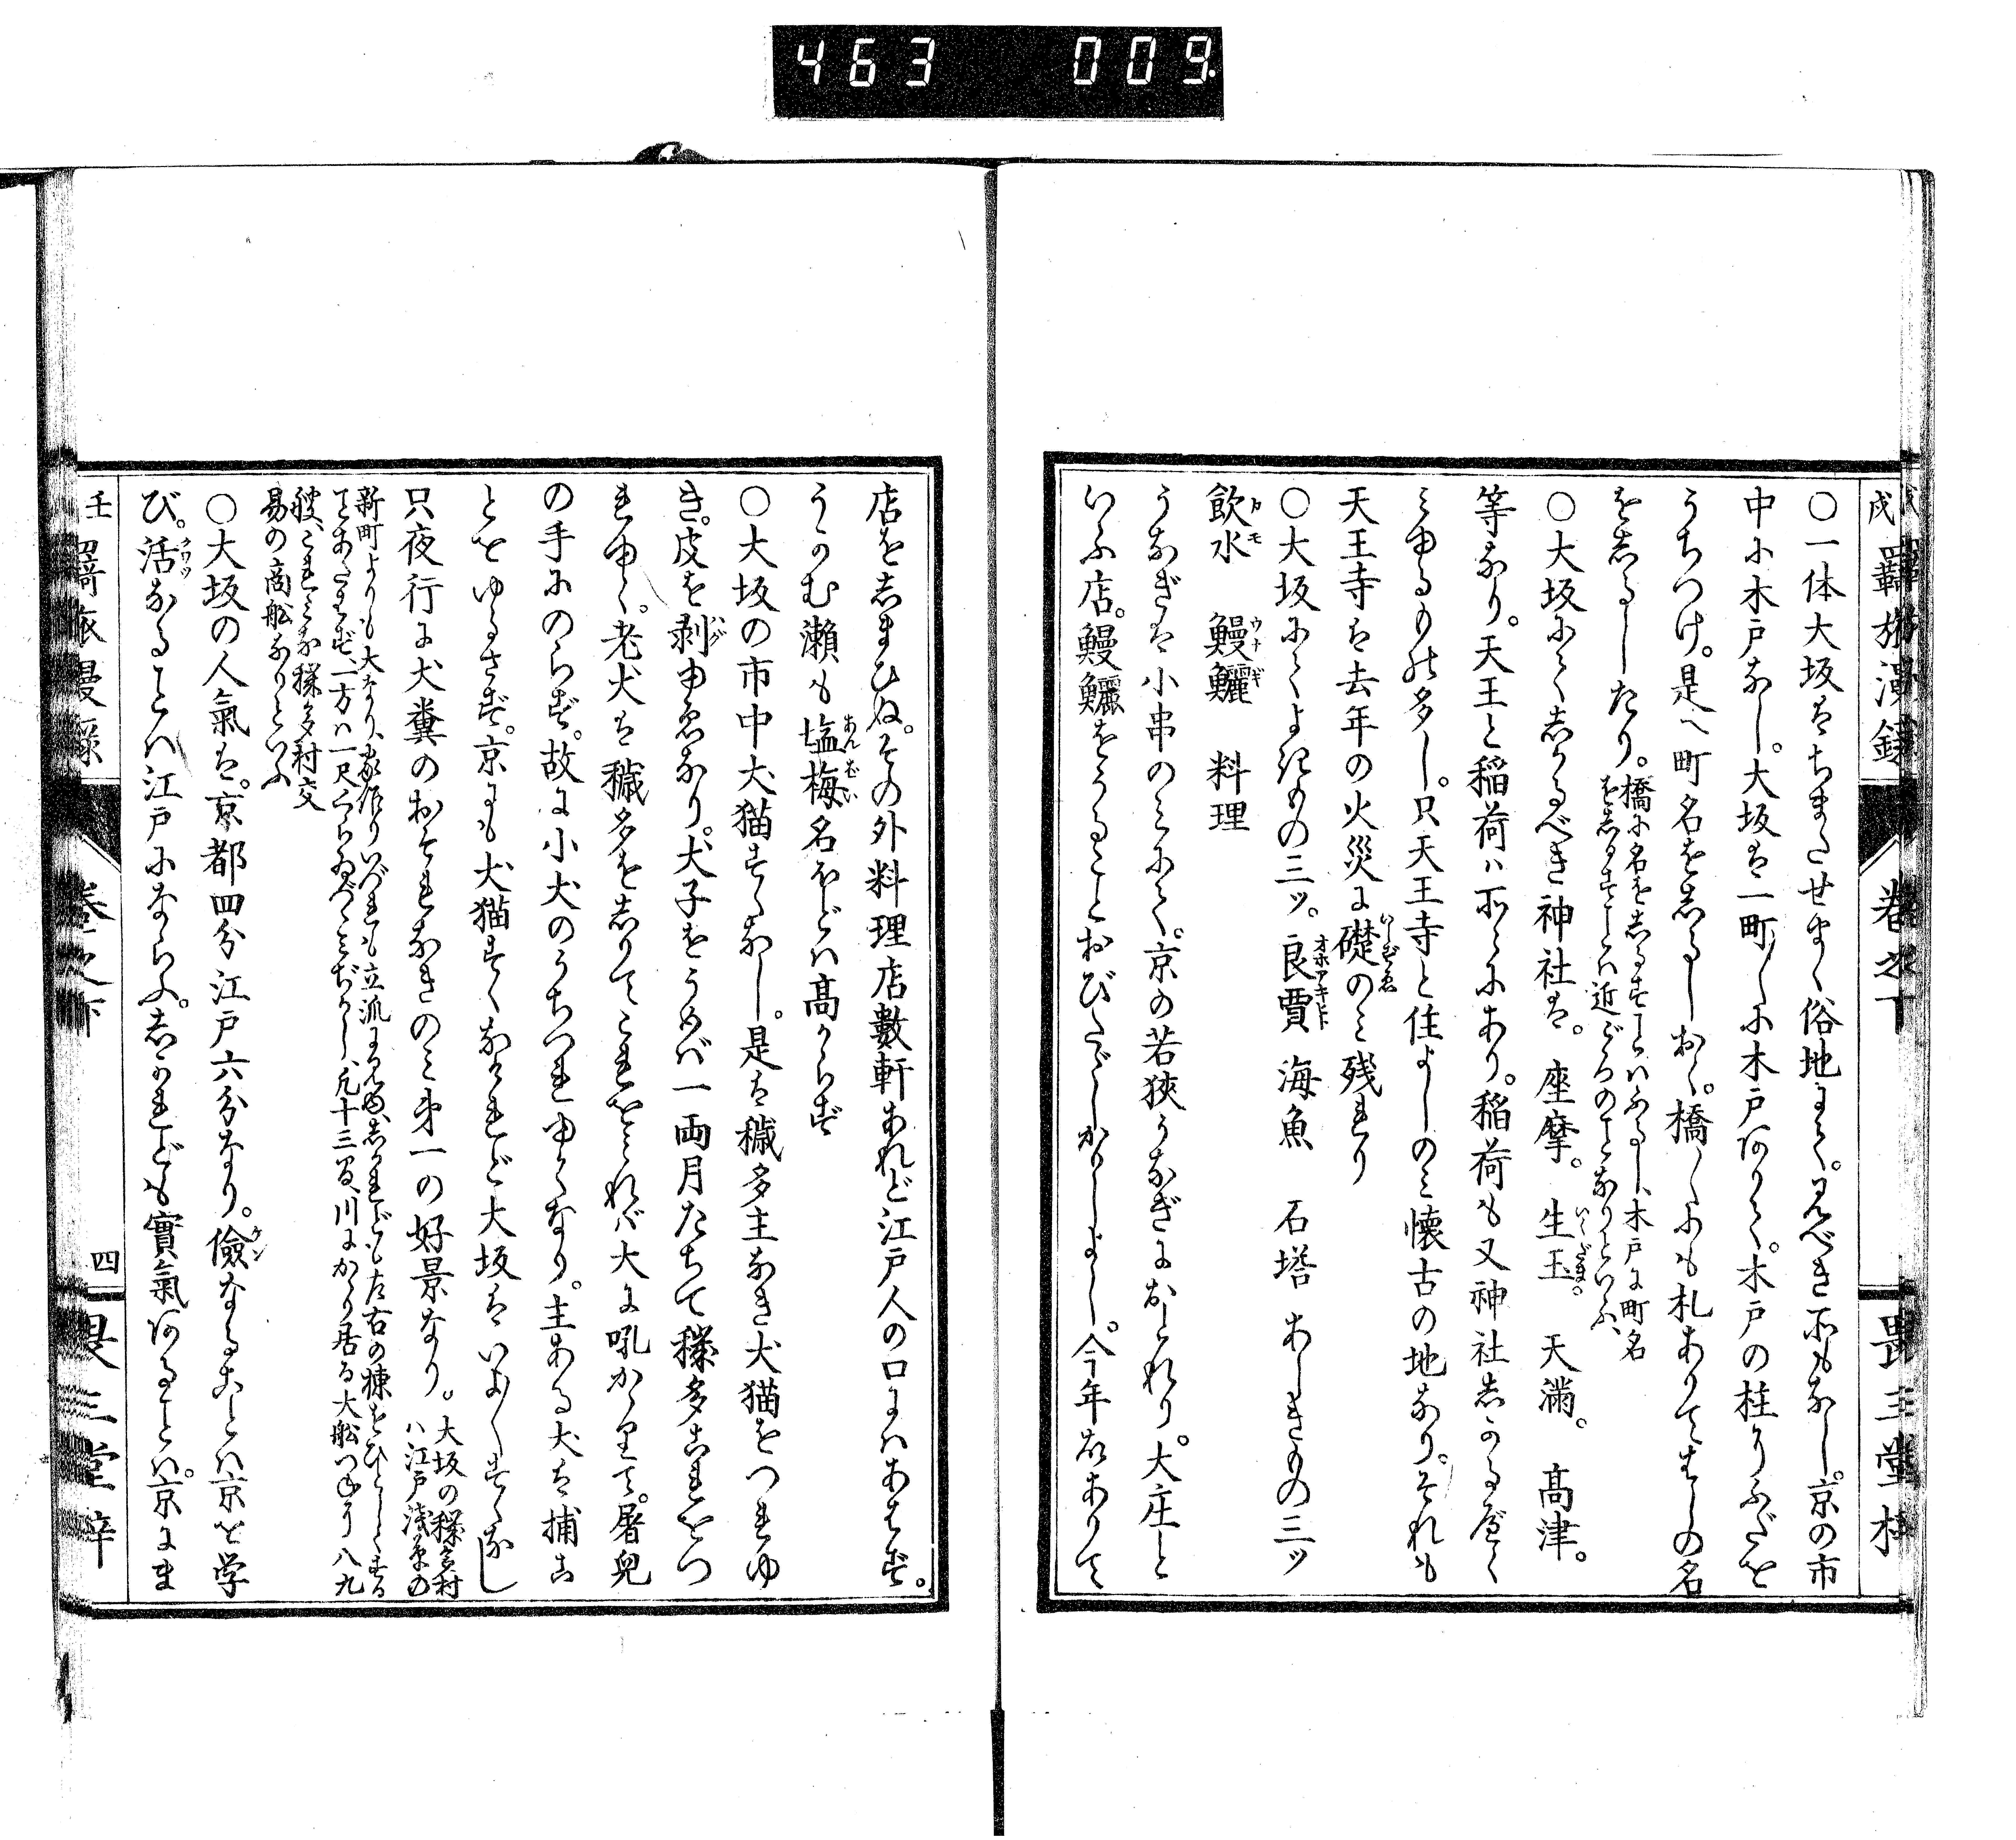 463 009
壬戌羇旅漫録 巻之下 畏三堂梓
○一体大坂はちまたせまく俗地にして。見べき所もなし。京の市
中に木戸なし。大坂は一町〳〵に木戸ありて。木戸の柱りふだを
うちつけ。是へ町名をしるしおく。橋〳〵にも札ありてはしの名
をしるしたり。橋に名をしるすことはふるし、木戸に町名
をしるすことは近ごろのことなりといふ、
○大坂にてしかるべき神社は。座摩。生玉。天満。高津。
等なり。天王と稲荷ハ所々にあり。稲荷も又神社しかるべく
みゆるもの多し。只天王寺と住よしのミ懐古の地なり。それも
天王寺は去年の火災に礎のミ残れり
○大坂にてよきもの三ツ。良賈 海魚 石塔 あしきもの三ツ
飲水 鰻鱺 料理
うなぎは小串のミにて。京の若狭うなぎにおとれり。大庄と
いふ店。鰻鱺をうることおびたゞしかりしよし。今年故ありて
店をしまひぬ。その外料理店數軒あれど江戸人の口にハあはず。
うかむ瀬も塩梅名ほどハ高からず
○大坂の市中犬猫すくなし。是は穢多主なき犬猫をつれゆ
き。皮を剥ゆゑなり。犬子をうめバ一両月たちて穢多これをつ
れゆく。老犬は穢多をしりてこれをみれバ大に吼かゝりて。屠兒
の手にのらず。故に小犬のうちつれゆくなり。主ある犬は捕こ
とをゆるさず。京にも犬猫すくなけれど大坂はいよ〳〵すくなし
只夜行に犬糞のおそれなきのミ第一の好景なり。大坂の穢多村
ハ江戸浅草の
新町よりも大なり、家作りいづれも立派に見ゆ、しかれども左右の棟をひとしくする
ことあたはず、一方ハ一尺くらゐづゝミぢかし、凡十三四艘、川にかゝり居る大舩つねに八九
艘、これミな穢多村交
易の商舩なりといふ
○大坂の人氣は。京都四分江戸六分なり。儉なることハ京を学
び。活なることハ江戸にならふ。しかれども實氣あることハ。京にま
壬戌羇旅漫録 巻之下 四 畏三堂梓